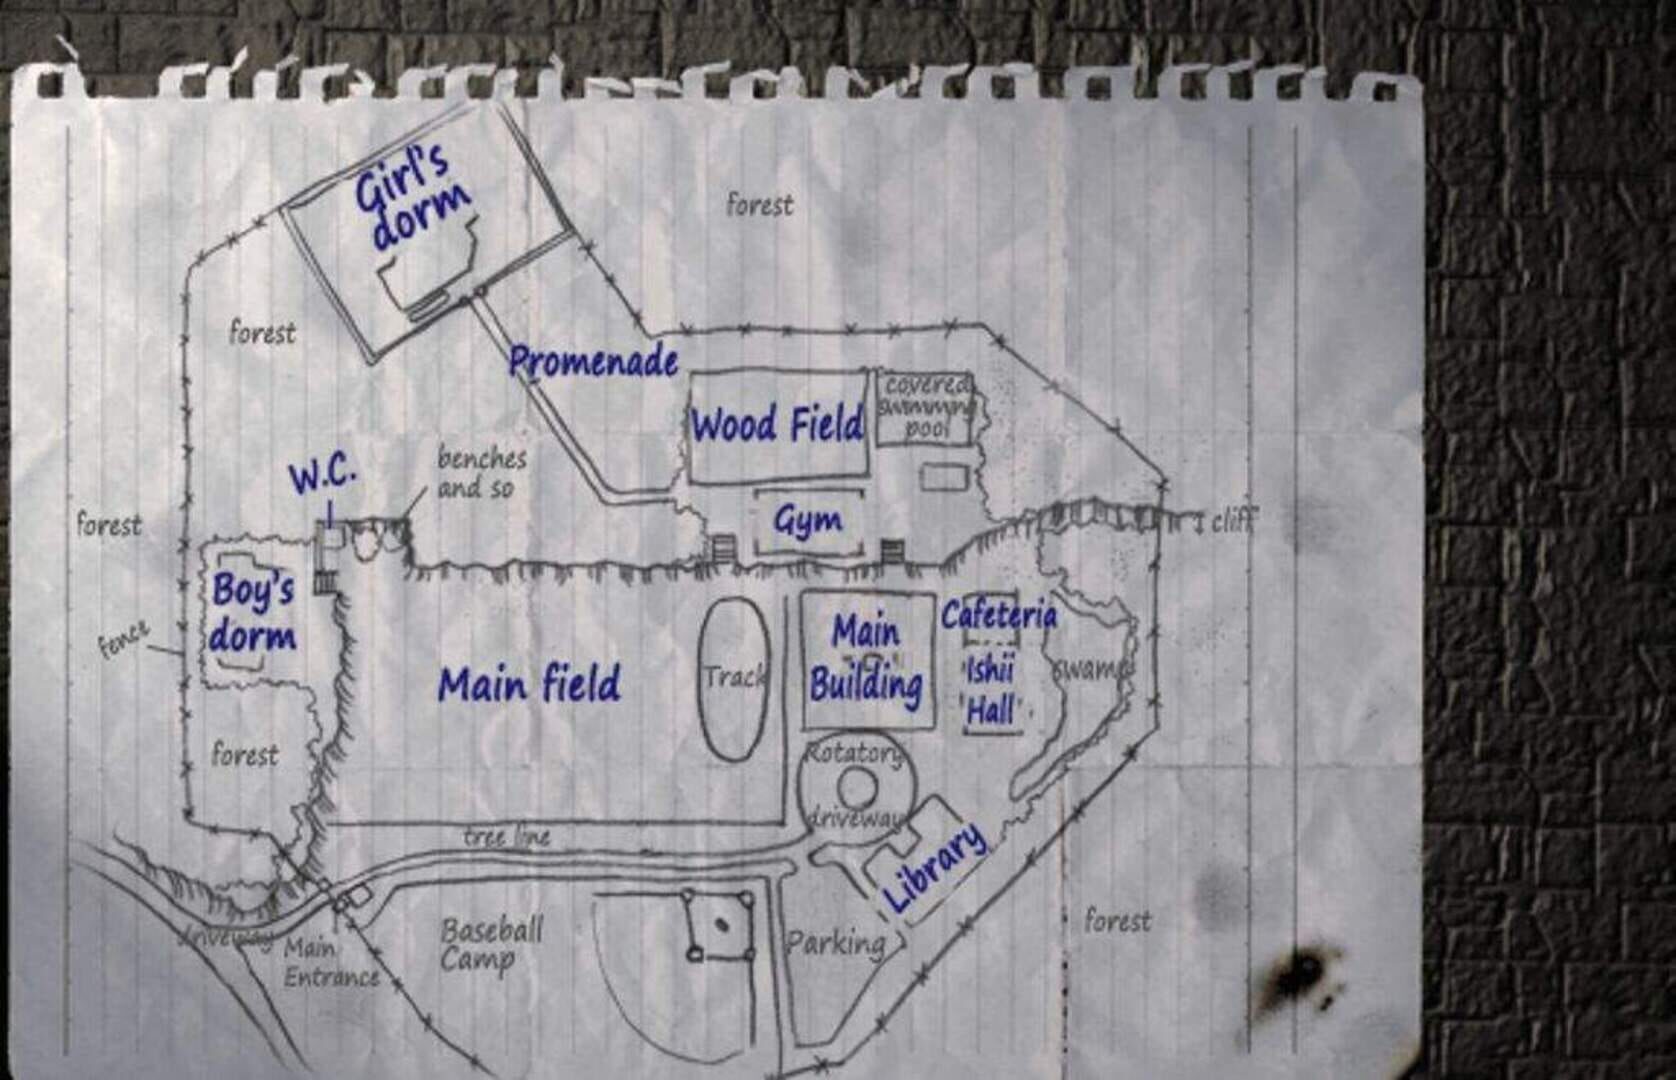 Girl's
dorm
forest
forest
Promenade
covered
swimming
pool
Wood Field
benches
and so
W.C.
forest
Gym
cliff
Boy's
dorm
fence
Main field
Track
Main
Building
Cafeteria
Ishii
Hall
swamp
forest
Rotatory
driveway
tree line
Library
driveway
Main
Entrance
Baseball
Camp
Parking
forest